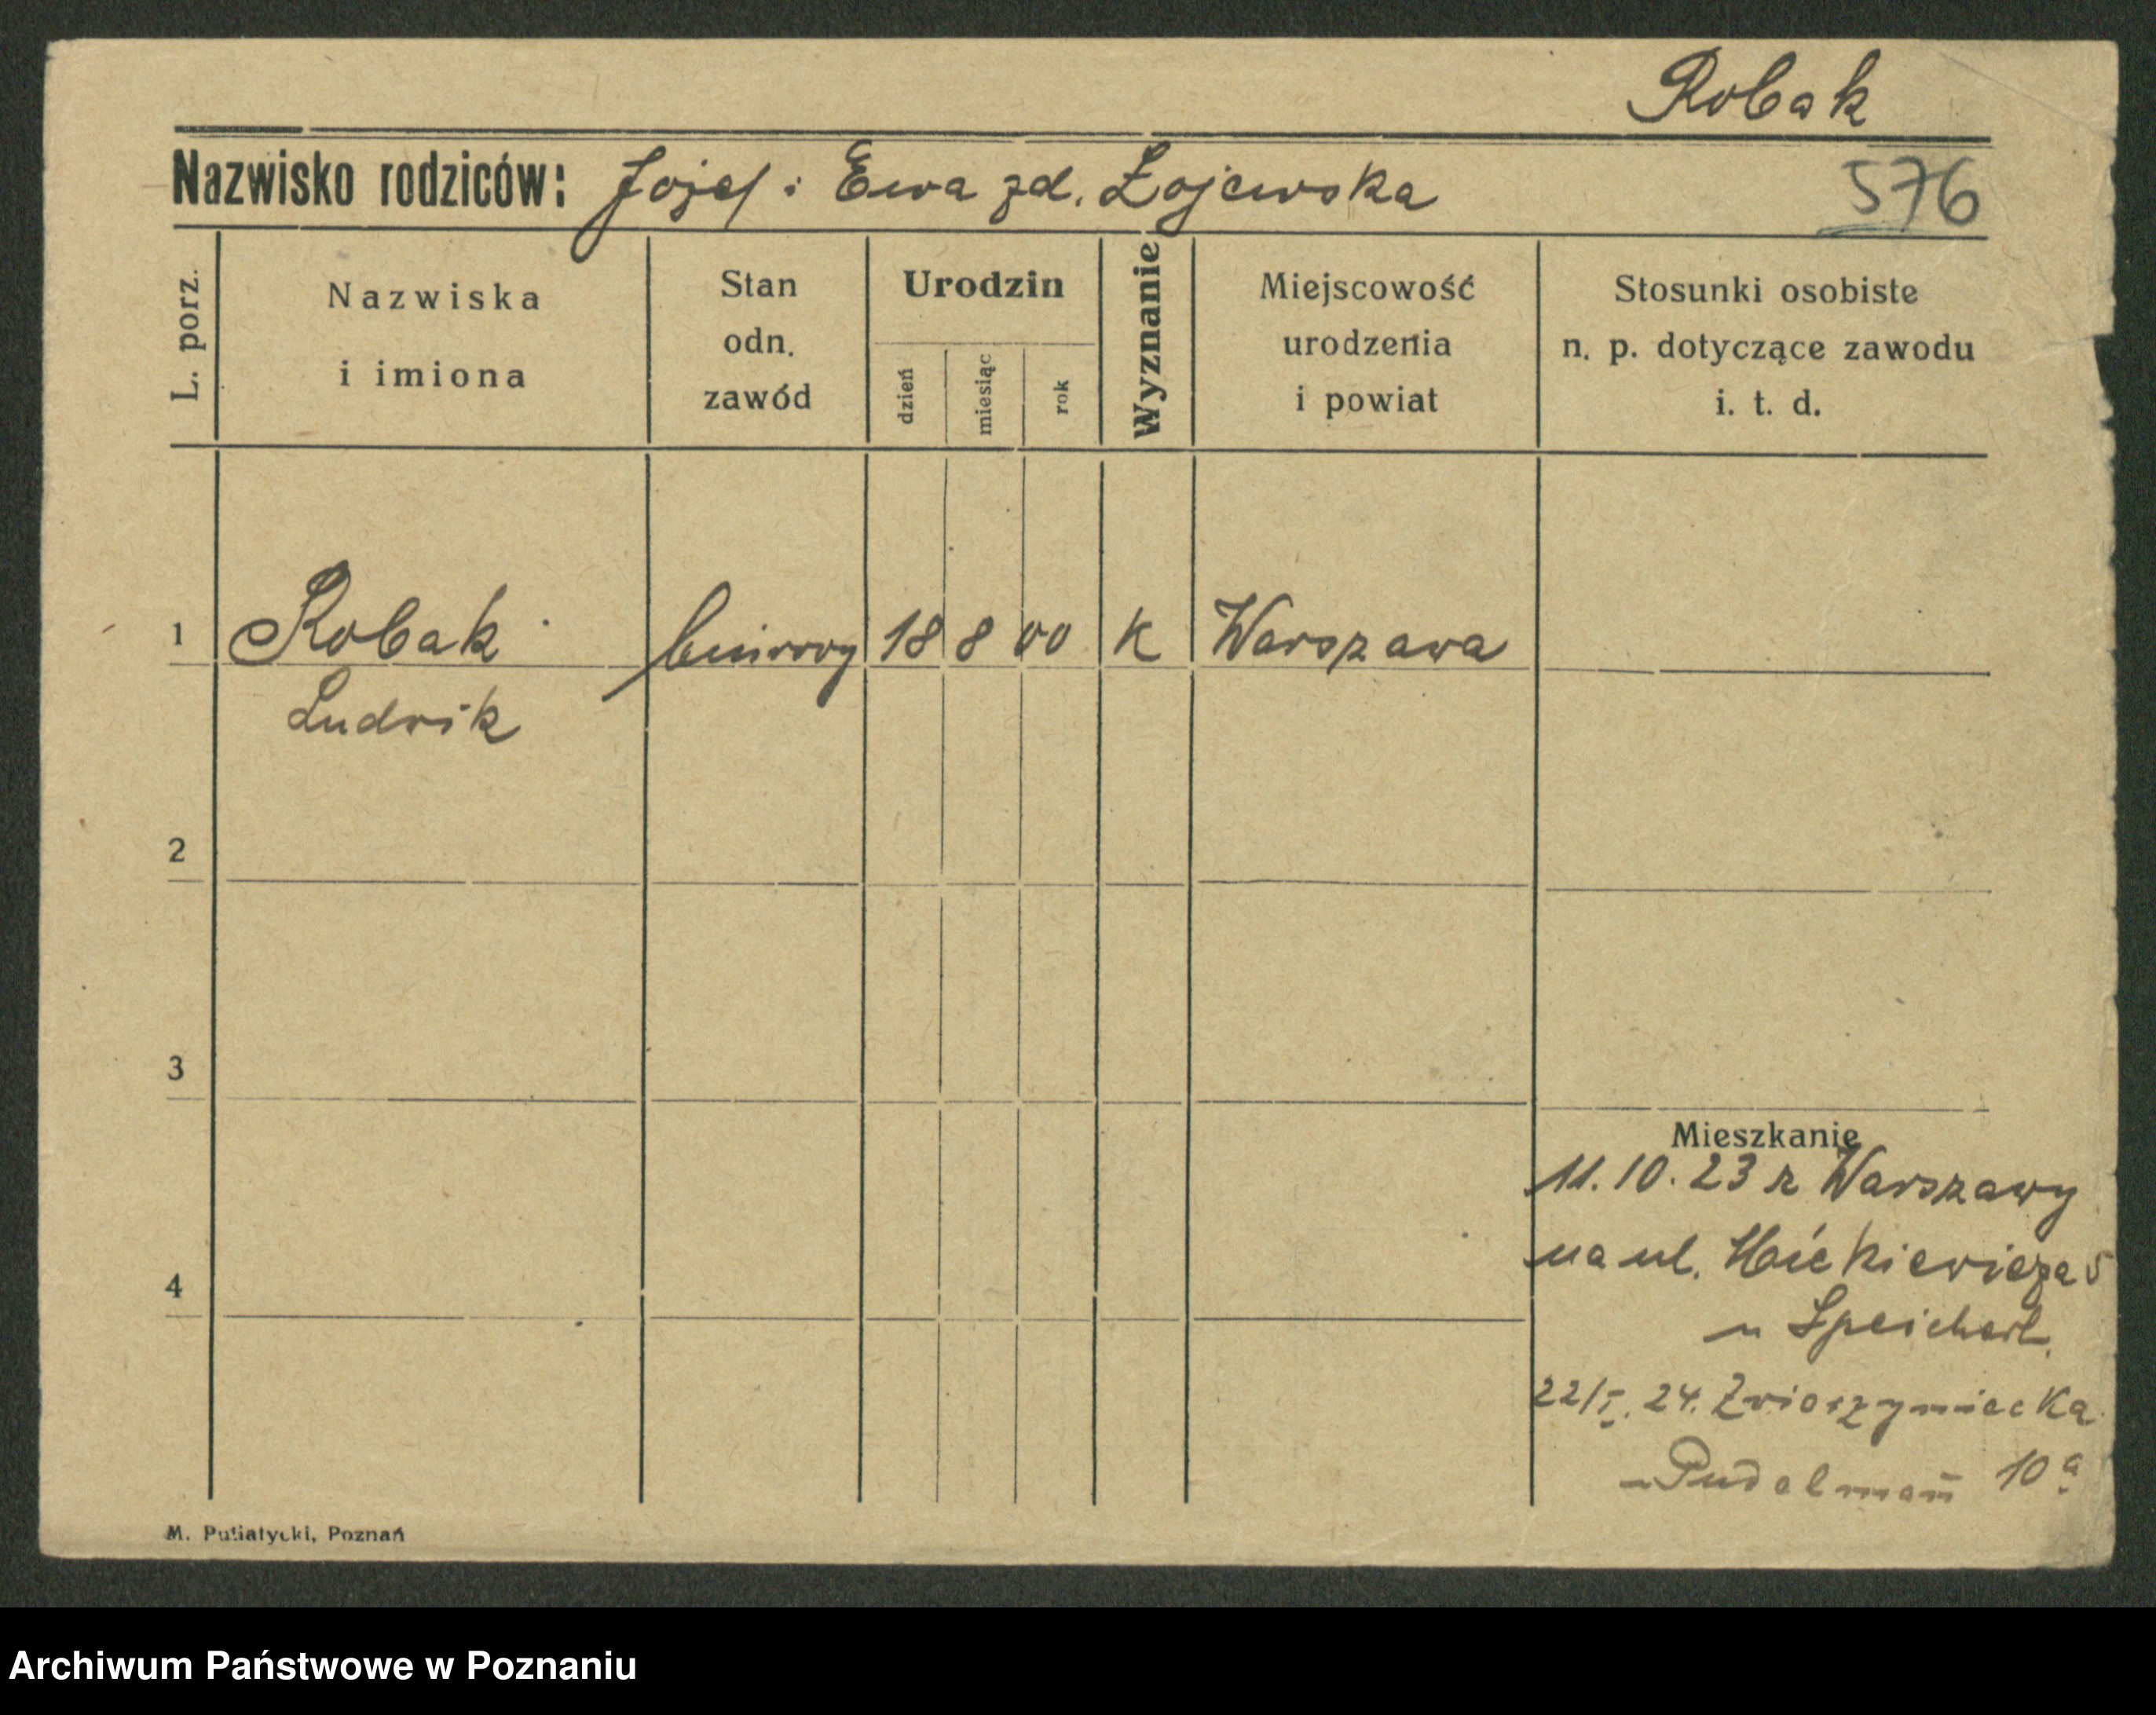 Robak
Nazwisko rodziców: Józef i Ewa zd. Łojewska
576
L. porz.
Nazwiska
i imiona
Stan
odn.
zawód
Urodzin
dzień
miesiąc
rok
Wyznanie
Miejscowość
urodzenia
i powiat
Stosunki osobiste
n. p. dotyczące zawodu
i. t. d.
1 Robak biurowy 18 8 00 K Warszawa
Ludwik
2
3
4
Mieszkanie
11.10.23 z Warszawy
na ul. Mickiewicza 5
u Speichert
22/I. 24. Zwierzyniecka
u Pudelmań 10a
M. Putiatycki, Poznań
Archiwum Państwowe w Poznaniu